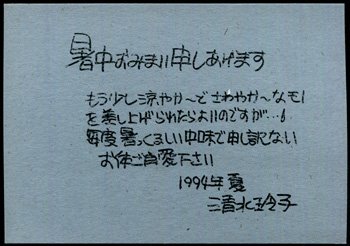 暑中おみまい申しあげます
もう少し涼やか～どさわやか～なモノ
を差し上げられたらよいのですが…!
毎度暑っくるしい中味で申し訳ない
お体ご自愛下さい
1994年 夏
清水玲子